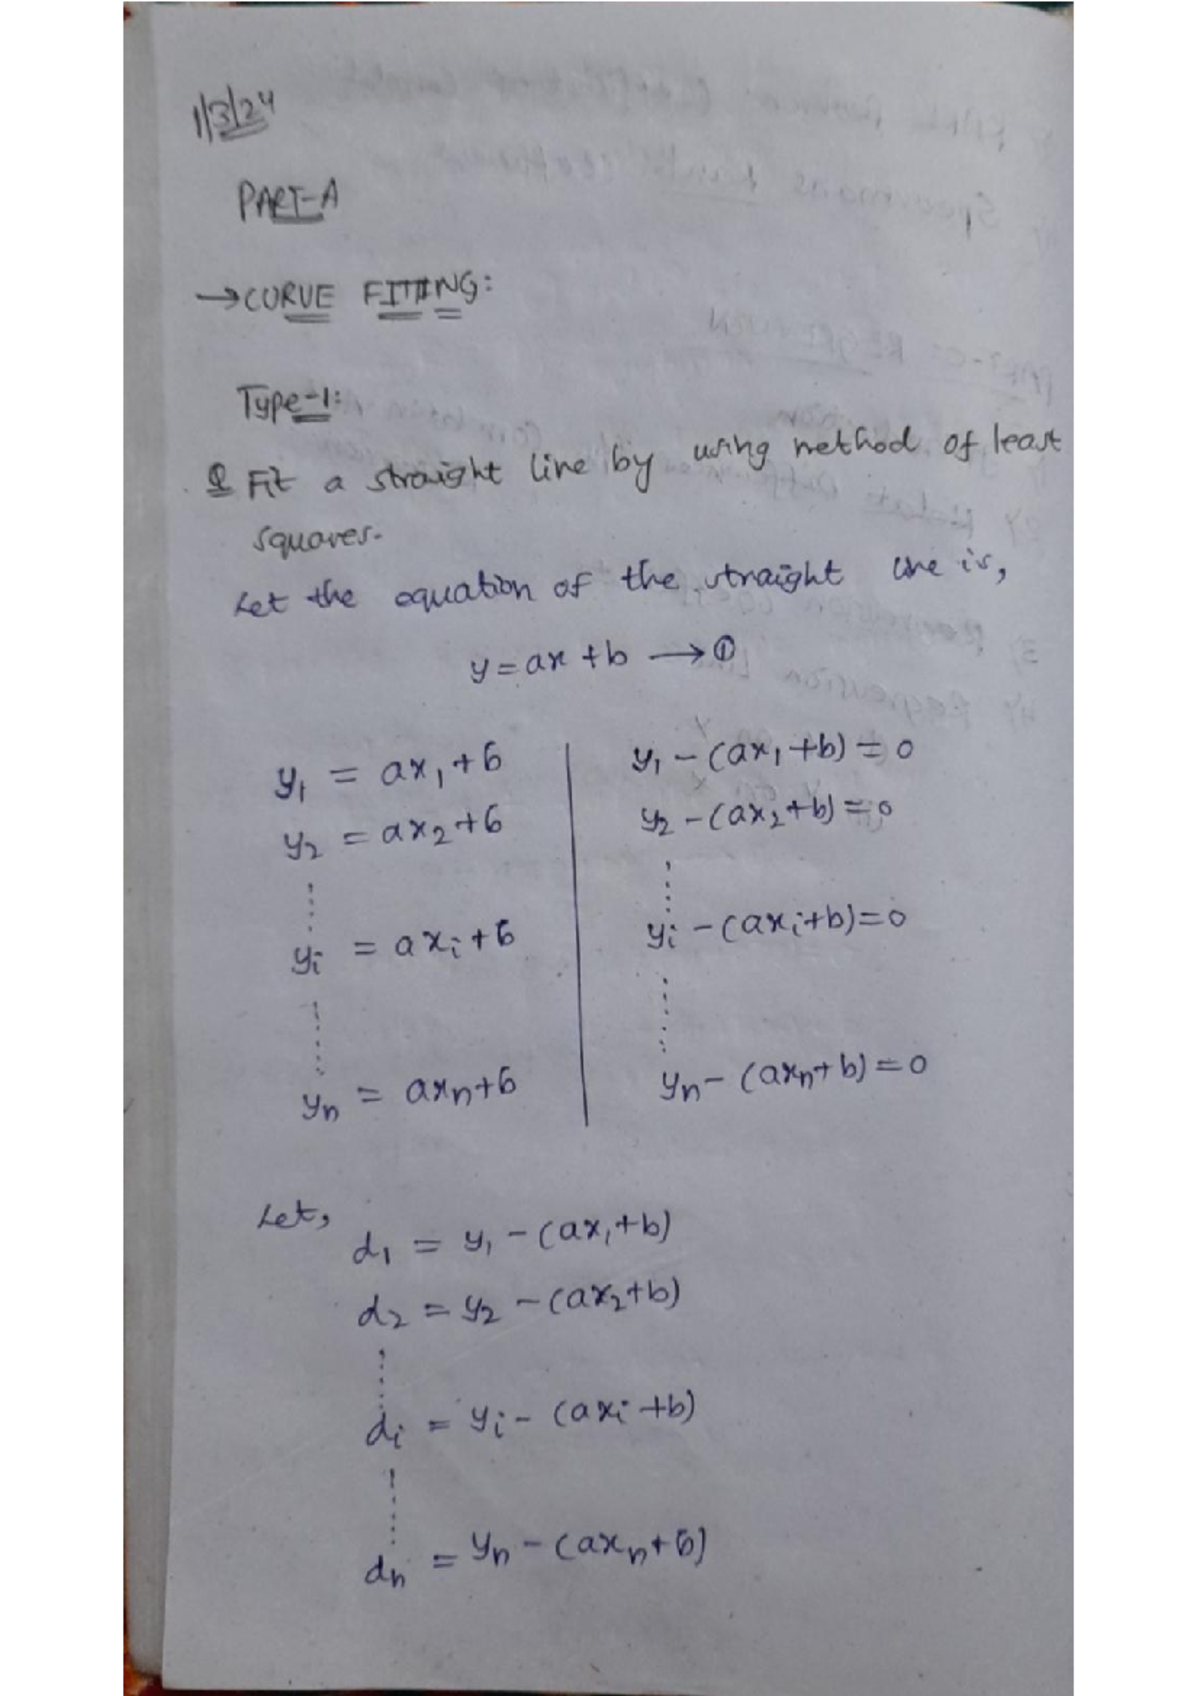 1/3/24
PART-A
→ CURVE FITTING:
Type-1:
Q Fit a straight line by using method of least
squares.
Let the equation of the straight line is,
y = ax + b → ①
y₁ = ax₁ + b
y₂ = ax₂ + b
⋮
yᵢ = axᵢ + b
⋮
yₙ = axₙ + b
y₁ - (ax₁ + b) = 0
y₂ - (ax₂ + b) = 0
⋮
yᵢ - (axᵢ + b) = 0
⋮
yₙ - (axₙ + b) = 0
Let,
d₁ = y₁ - (ax₁ + b)
d₂ = y₂ - (ax₂ + b)
⋮
dᵢ = yᵢ - (axᵢ + b)
⋮
dₙ = yₙ - (axₙ + b)